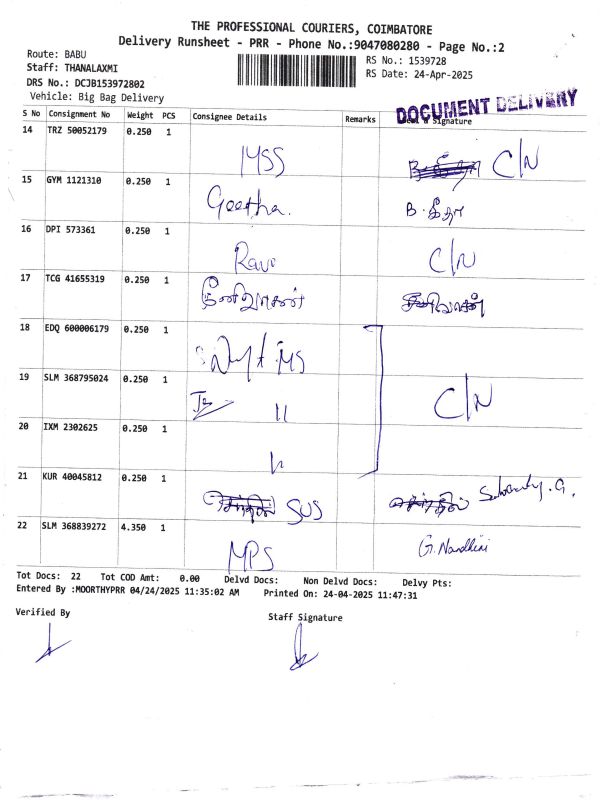 THE PROFESSIONAL COURIERS, COIMBATORE
Delivery Runsheet - PRR - Phone No.:9047080280 - Page No.:2
Route: BABU
Staff: THANALAXMI
DRS No.: DCJB153972802
Vehicle: Big Bag Delivery
RS No.: 1539728
RS Date: 24-Apr-2025
DOCUMENT DELIVERY
S No Consignment No Weight PCS Consignee Details Remarks & Signature
14 TRZ 50052179 0.250 1 C/N
15 GYM 1121310 0.250 1 Geetha. B. கீதா
16 DPI 573361 0.250 1 C/N
17 TCG 41655319 0.250 1
18 EDQ 600006179 0.250 1
19 SLM 368795024 0.250 1 11 C/N
20 IXM 2302625 0.250 1
21 KUR 40045812 0.250 1 SUS
22 SLM 368839272 4.350 1 MPS G. Nandhini
Tot Docs: 22 Tot COD Amt: 0.00 Delvd Docs: Non Delvd Docs: Delvy Pts:
Entered By :MOORTHYPRR 04/24/2025 11:35:02 AM Printed On: 24-04-2025 11:47:31
Verified By
Staff Signature